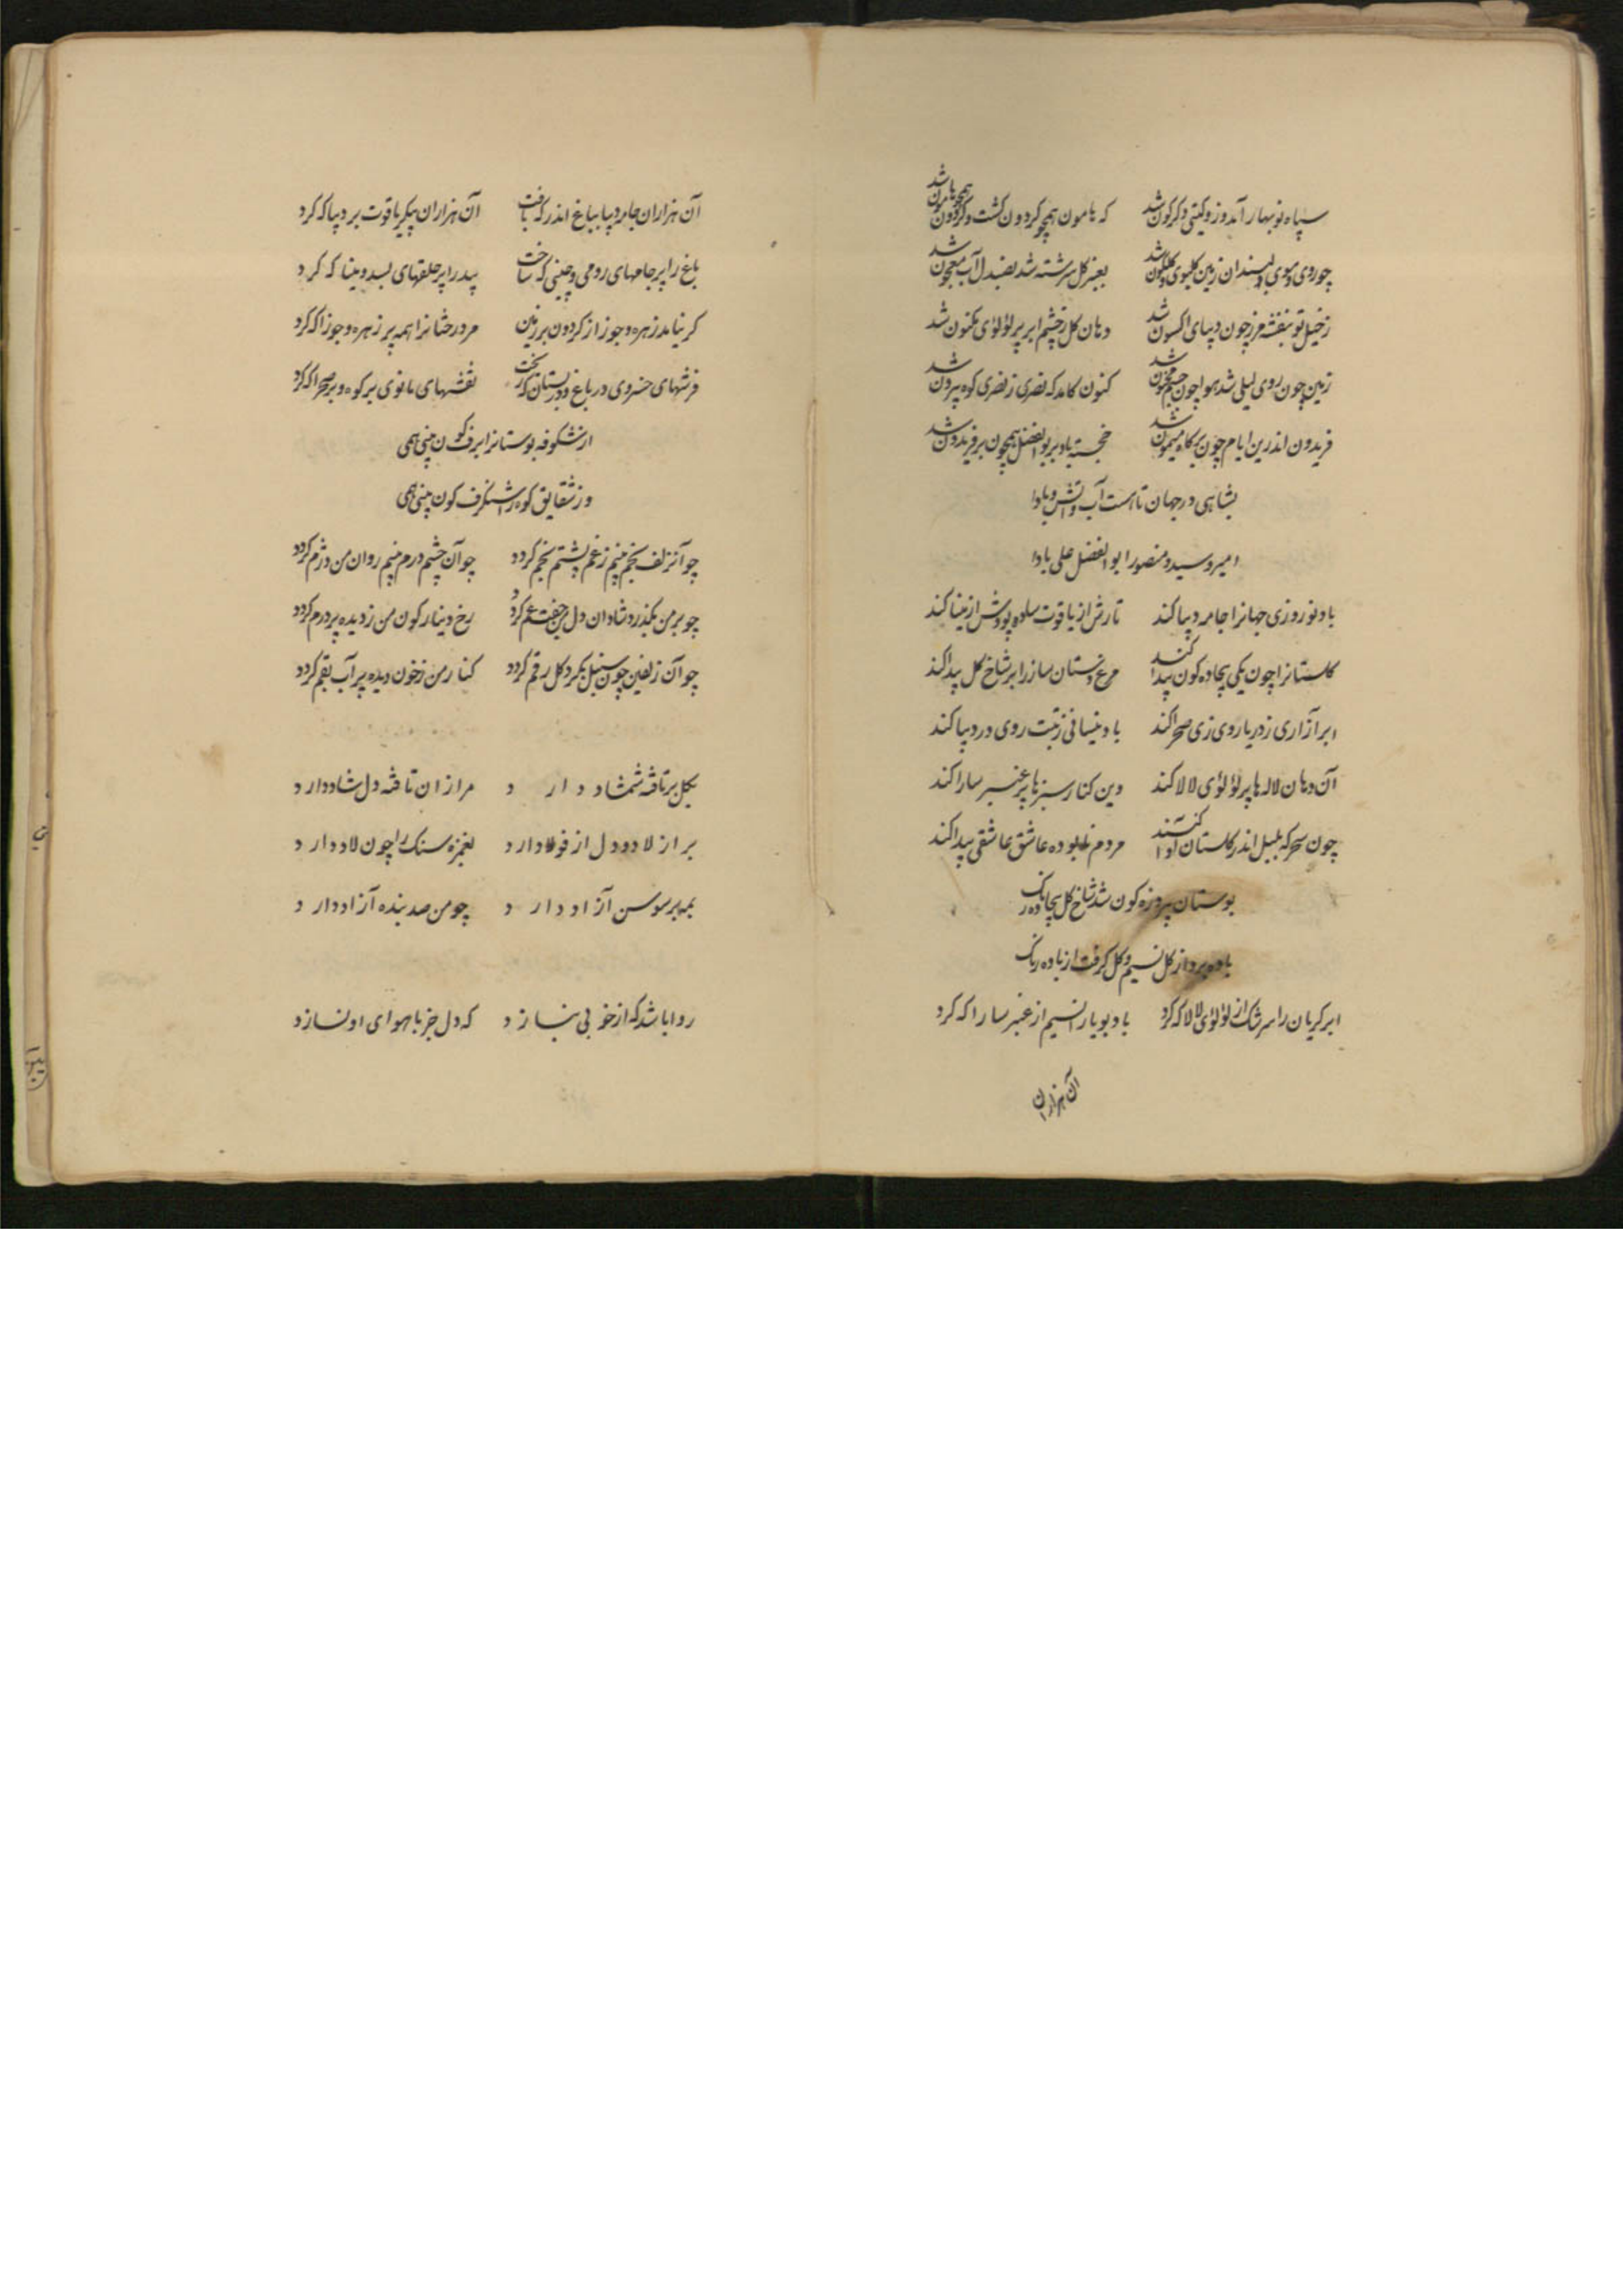 سپاه نوبهار آمد وزو گیتی دگرگون شد که هامون همچو گردون گشت و گردون همچو هامون شد
چو روی و موی دلبندان زمین گلبوی و گلگون شد بعنبر گل سرشته شد بصندل آب معجون شد
ز خیل نو بنفشه مرز چون دیبای اکسون شد دهان گل ز چشم ابر پر لؤلؤی مکنون شد
زمین چون روی لیلی شد هوا چون چشم مجنون شد کنون کامد که نصری ز نصری کوه بیرون شد
فریدون اندرین ایام چون بر گاه میمون شد خجسته باد بر بوالفضل همچون بر فریدون شد
بشاهی در جهان تا هست آب و آتش و بادا
امیر و سید و منصور ابوالفضل علی بادا
باد نوروزی جهانرا جامه دیبا کند تارش از یاقوت ساده پودش از مینا کند
گلستانرا چون یکی بیجاده گون پیدا کند مرغ دستان ساز را بر شاخ گل پیدا کند
ابر آزاری ز دریا روی زی صحرا کند باد نیسانی ز تبت روی در دیبا کند
آن دهان لاله ها پر لؤلؤی لالا کند وین کنار سبزها پر عنبر سارا کند
چون سحرگه بلبل اندر گلستان آوا کند مردم نابوده عاشق عاشقی پیدا کند
بوستان پیروزه گون شد شاخ گل بیجاده رنگ
باده برد از گل نسیم و گل گرفت از باده رنگ
ابر گریان را سرشک از لؤلؤی لالا که کرد باد بویا را نسیم از عنبر سارا که کرد
آن هزاران
آن هزاران جامه دیبا بباغ اندر که بافت آن هزاران پیکر یاقوت بر دیبا که کرد
باغ را پر جامهای رومی و چینی که ساخت بید را پر حلقهای بسد و مینا که کرد
گر نیامد زهره و جوزا از گردون بر زمین مر درختانرا همه پر زهره و جوزا که کرد
فرشهای خسروی در باغ و در بستان که ریخت نقشهای مانوی بر کوه و بر صحرا که کرد
از شکوفه بوستانرا برف گون بینی همی
وز شقایق کوه را شنگرف گون بینی همی
چو آنزلف بخم بینم ز غم پشتم بخم گردد چو آن چشم درم بینم روان من دژم گردد
چو بر من بگذرد شادان دل من جفت غم گردد رخ دینار گون من ز دیده پر درم گردد
چو آن زلفین چون سنبل بگرد گل رقم گردد کنار من ز خون دیده پر آب بقم گردد
بگل بر تافته شمشاد دارد مرا زان تافته دل شاد دارد
بر از لاد و دل از فولاد دارد بغمزه سنگ را چون لاد دارد
بمه بر سوسن آزاد دارد چو من صد بنده آزاد دارد
روا باشد که از خوبی بنازد که دل جز با هوای او نسازد